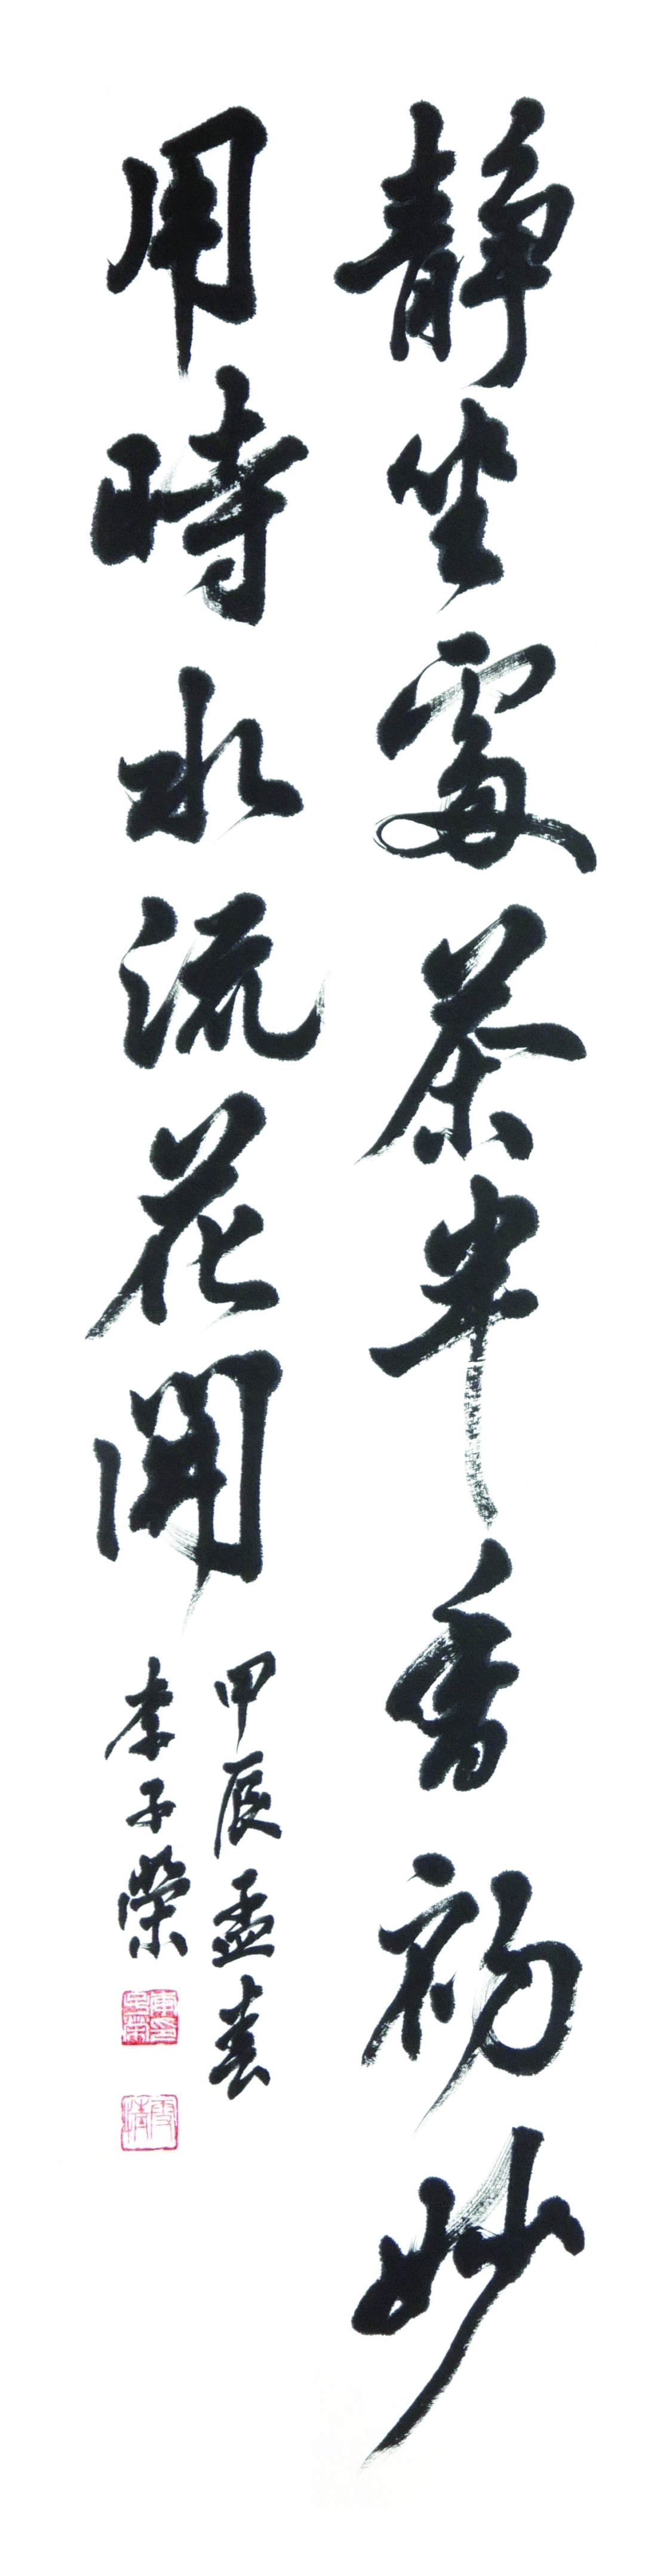 靜坐處茶半香初妙
用時水流花開
甲辰孟春
李子榮